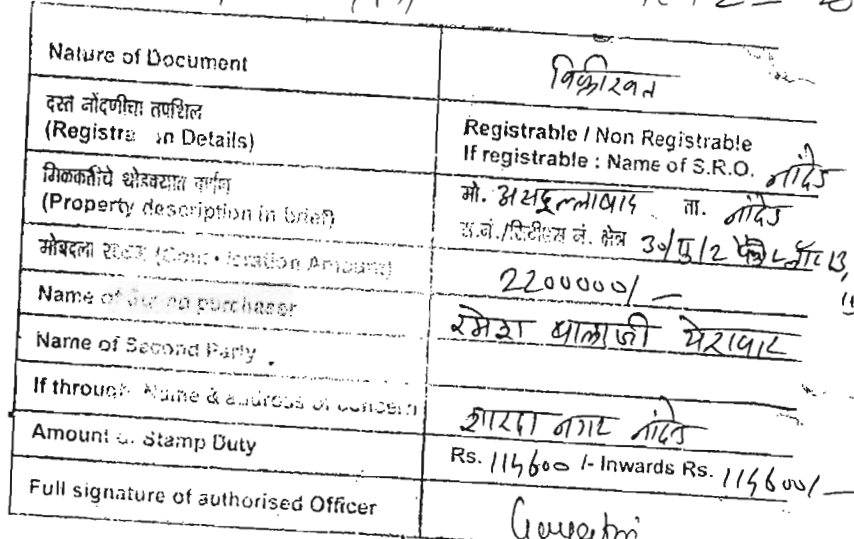 Nature of Document
विक्रीखत
दस्त नोंदणीचा तपशिल
(Registra n Details)
Registrable / Non Registrable
If registrable : Name of S.R.O. नांदेड
मिळकतीचे थोडक्यात वर्णन
(Property description in brief)
मो. असदुल्लाबाद ता. नांदेड
स.नं./सिटीएस नं. क्षेत्र 30/पु/2
मोबदला रक्कम (Consideration Amount)
2200000/-
Name of purchaser
रमेश बालाजी येरावार
Name of Second Party
If through Name & address of concern
शारदा नगर नांदेड
Amount of Stamp Duty
Rs. 114600 /- Inwards Rs. 114600/-
Full signature of authorised Officer